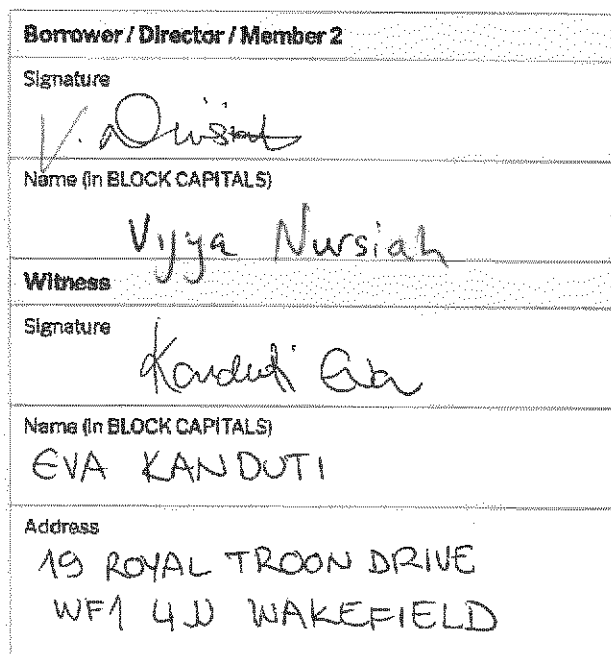 Borrower / Director / Member 2
Signature
Name (in BLOCK CAPITALS)
Vijya Nursiah
Witness
Signature
Kanduti Eva
Name (in BLOCK CAPITALS)
EVA KANDUTI
Address
19 ROYAL TROON DRIVE
WF1 4JJ WAKEFIELD